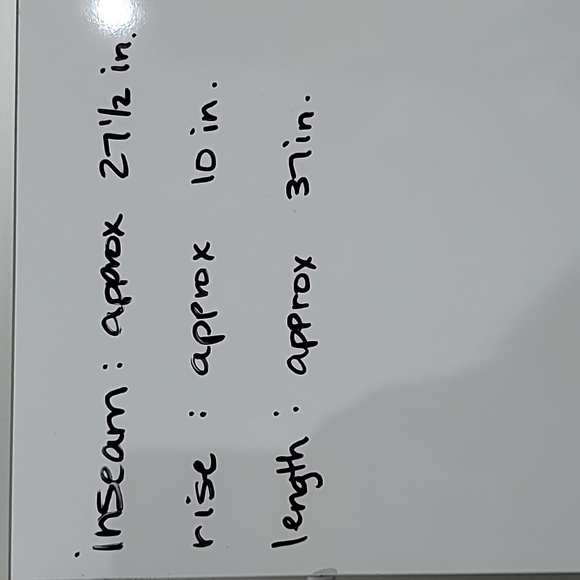 inseam : approx 27 1/2 in.
rise : approx 10 in.
length : approx 37 in.